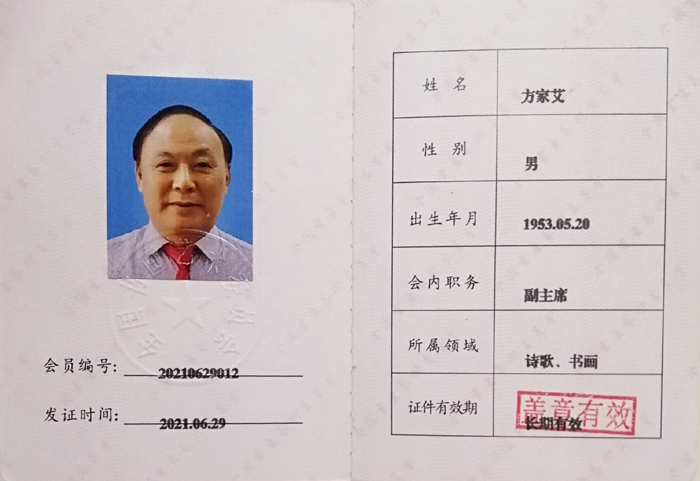 会员编号: 20210629012
发证时间: 2021.06.29
姓 名 方家艾
性 别 男
出生年月 1953.05.20
会内职务 副主席
所属领域 诗歌、书画
证件有效期 长期有效
盖章有效